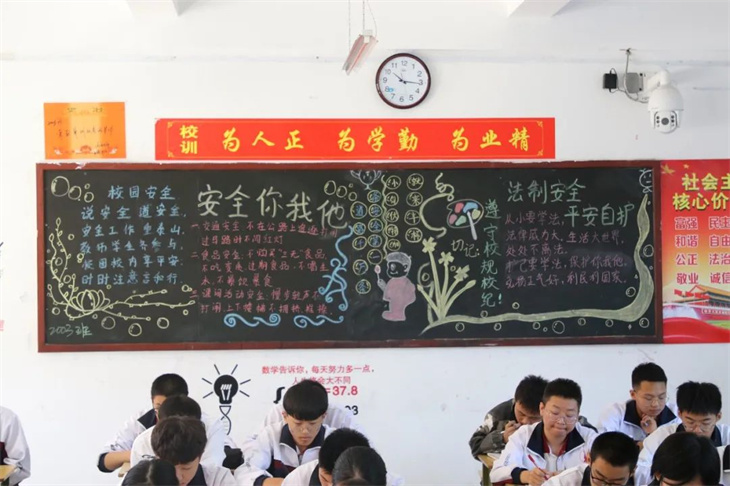 校训
为人正 为学勤 为业精
校园安全
说安全 道安全,
安全工作重泰山,
教师学生齐参与,
校园校内享平安,
时时注意言和行.
2003班
安全你我他
一、交通安全 不在公路上追逐
过马路时不闯红灯
二、食品安全 不购买"三无"食品
不吃变质过期食品、不喝生
水、不暴饮暴食
打闹上下楼梯不拥挤
切记:
遵守校规校纪!
法制安全
平安自护
从小要学法,
法律威力大,生活大世界,
处处不离法,
学法,保护你我他,
利民利国家.
社会主
核心价
富强 民主
和谐 自由
公正 法治
敬业 诚信
数学告诉你,每天努力多一点,
人生将会大不同
=37.8